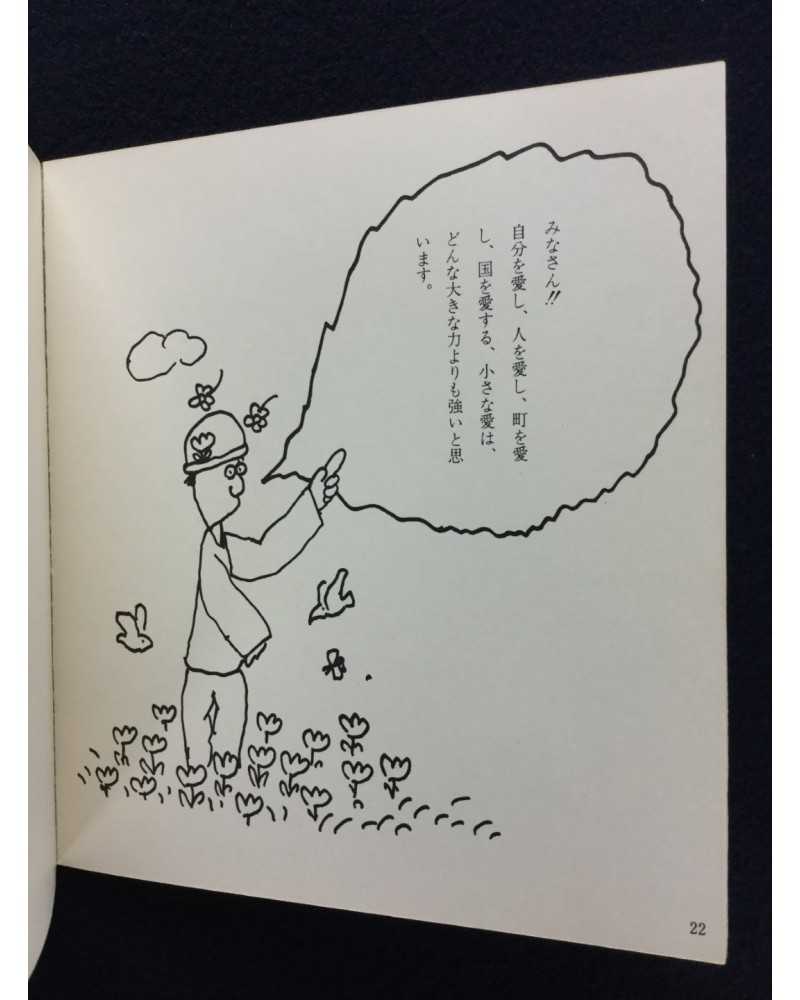 みなさん!!
自分を愛し、人を愛し、町を愛
し、国を愛する、小さな愛は、
どんな大きな力よりも強いと思
います。
22